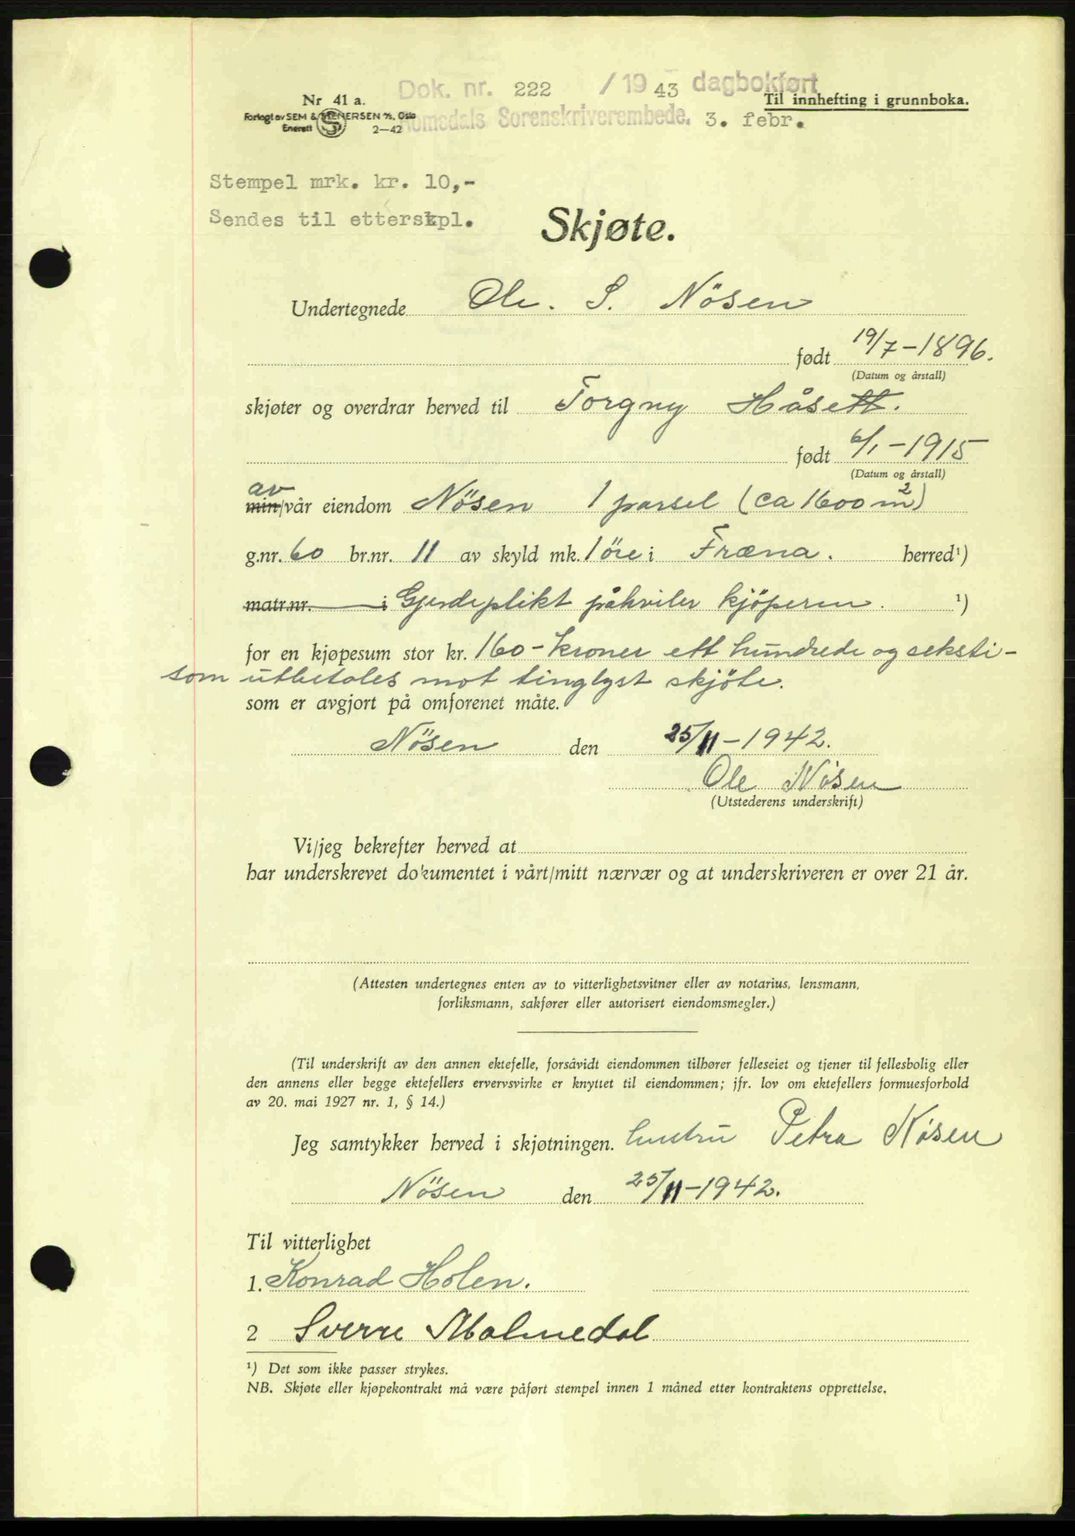 Dok. nr. 222 /1943 dagbokført
Nr 41 a. Til innhefting i grunnboka.
Forlagt av SEM & STENERSEN A/S, Oslo
Enerett S 2-42
Romsdals Sorenskriverembede. 3. febr.
Stempel mrk. kr. 10,-
Sendes til etterstpl.
Skjøte.
Undertegnede Ole. S. Nösen
født 19/7-1896.
(Datum og årstall)
skjøter og overdrar herved til Torgny Håsett.
født 6/1-1915
(Datum og årstall)
av
min/vår eiendom Nösen 1 parsel (ca 1600 m2)
g.nr. 60 br.nr. 11 av skyld mk. 1 öre i Fræna. herred¹)
matr.nr. i Gjerdeplikt påhviler kjöperen. ¹)
for en kjøpesum stor kr. 160-kroner ett hundrede og seksti-
som utbetales mot tinglyst skjöte.
som er avgjort på omforenet måte.
Nösen den 25/11-1942.
Ole Nösen
(Utstederens underskrift)
Vi/jeg bekrefter herved at
har underskrevet dokumentet i vårt/mitt nærvær og at underskriveren er over 21 år.
(Attesten undertegnes enten av to vitterlighetsvitner eller av notarius, lensmann,
forliksmann, sakfører eller autorisert eiendomsmegler.)
(Til underskrift av den annen ektefelle, forsåvidt eiendommen tilhører felleseiet og tjener til fellesbolig eller
den annens eller begge ektefellers ervervsvirke er knyttet til eiendommen; jfr. lov om ektefellers formuesforhold
av 20. mai 1927 nr. 1, § 14.)
Jeg samtykker herved i skjøtningen. hustru Petra Nösen
Nösen den 25/11-1942.
Til vitterlighet
1. Konrad Holen.
2 Sverre Malmedal
¹) Det som ikke passer strykes.
NB. Skjøte eller kjøpekontrakt må være påført stempel innen 1 måned etter kontraktens opprettelse.